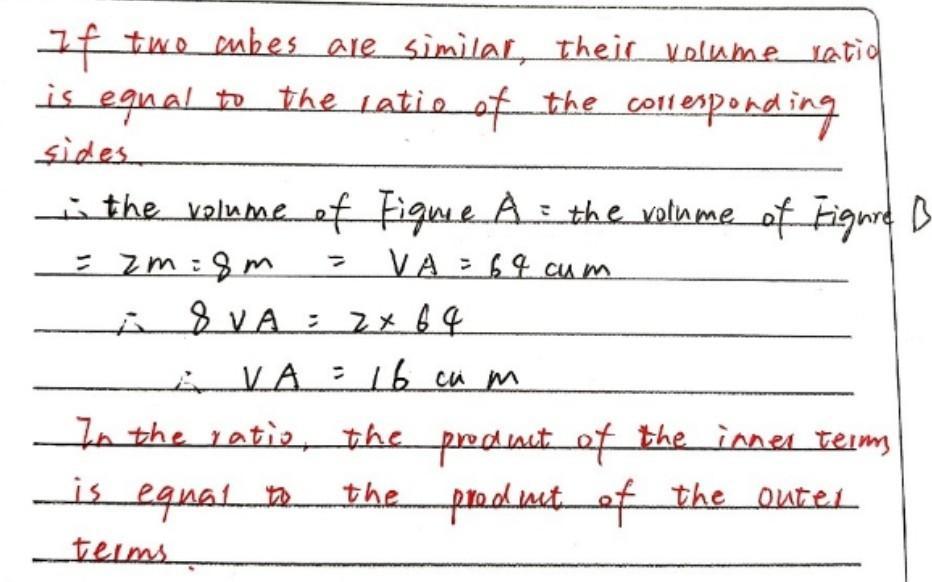 If two cubes are similar, their volume ratio
is equal to the ratio of the corresponding
sides.
∴ the volume of Figure A : the volume of Figure B
= 2m : 8m = VA : 64 cu m
∴ 8 VA = 2 × 64
∴ VA = 16 cu m
In the ratio, the product of the inner terms
is equal to the product of the outer
terms.